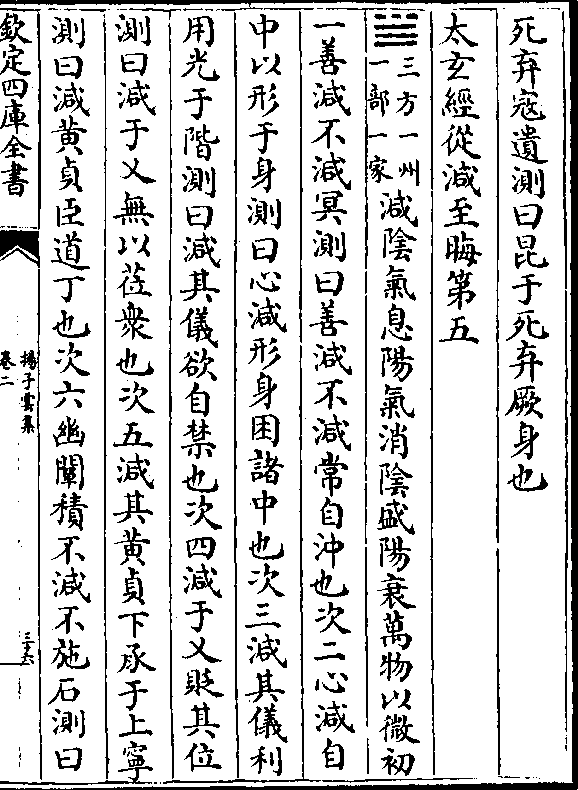 死弃寇遺測曰昆于死弃厥身也
太玄經從減至晦第五
三方一州
一部一家
減陰氣息陽氣消陰盛陽衰萬物以微初
一善減不減冥測曰善減不減常自沖也次二心減自
中以形于身測曰心減形身困諸中也次三減其儀利
用光于階測曰減其儀欲自禁也次四減于乂貶其位
測曰減于乂無以莅衆也次五減其黄貞下承于上寧
測曰減黄貞臣道丁也次六幽闡積不減不施石測曰
欽定四庫全書
揚子雲集
卷二
三十六